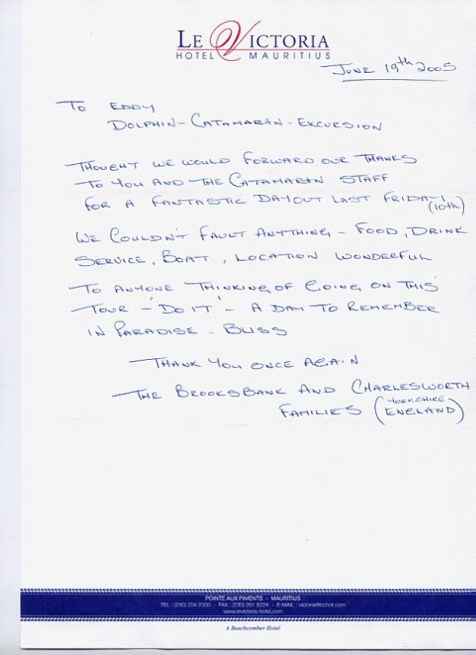 LE VICTORIA
HOTEL MAURITIUS
JUNE 19th 2005
TO EDDY
DOLPHIN - CATAMARAN - EXCURSION
THOUGHT WE WOULD FORWARD OUR THANKS
TO YOU AND THE CATAMARAN STAFF
FOR A FANTASTIC DAYOUT LAST FRIDAY
(10th)
WE COULDN'T FAULT ANYTHING - FOOD, DRINK
SERVICE, BOAT, LOCATION WONDERFUL
TO ANYONE THINKING OF GOING ON THIS
TOUR - 'DO IT' - A DAY TO REMEMBER
IN PARADISE - BLISS
THANK YOU ONCE AGAIN
THE BROOKSBANK AND CHARLESWORTH
FAMILIES (YORKSHIRE
ENGLAND)
POINTE AUX PIMENTS - MAURITIUS
A Beachcomber Hotel